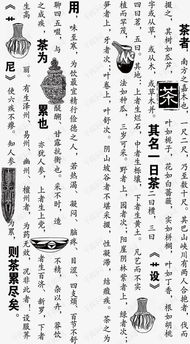 茶者，南方之嘉木也，一尺二尺，乃至数十尺。其巴山峡川有两人合抱者，伐而
掇之，其树如瓜芦，叶如栀子，花如白蔷薇，实如栟榈，
或从草，或从木，或草木并。
茶
其名一曰茶，二曰槚，三曰
《茶设》
其地：上者生烂石，中者生栎壤，下者生黄土。凡艺而不实
法如种瓜，三岁可采。野者上，园者次；阳崖阴林紫者上，绿者次；
笋者上，牙者次；叶卷上，叶舒次。阴山坡谷者不堪采掇，性凝滞，结瘕疾。茶之
用，味至寒，为饮最宜精行俭德之人，若热渴、凝闷、脑疼、目涩、四支烦、百节不舒，
聊四五啜，与醍醐、甘露抗衡也。采不时，造不精，杂以卉莽，饮
茶为累也
亦犹人参，上者生上党，中者生百济、新罗，下者
生高丽。有生泽州、易州、幽州、檀州者，为药无效，况非此者！设服荠
《 》
苨，使六疾不瘳。知人参
则茶累尽矣。